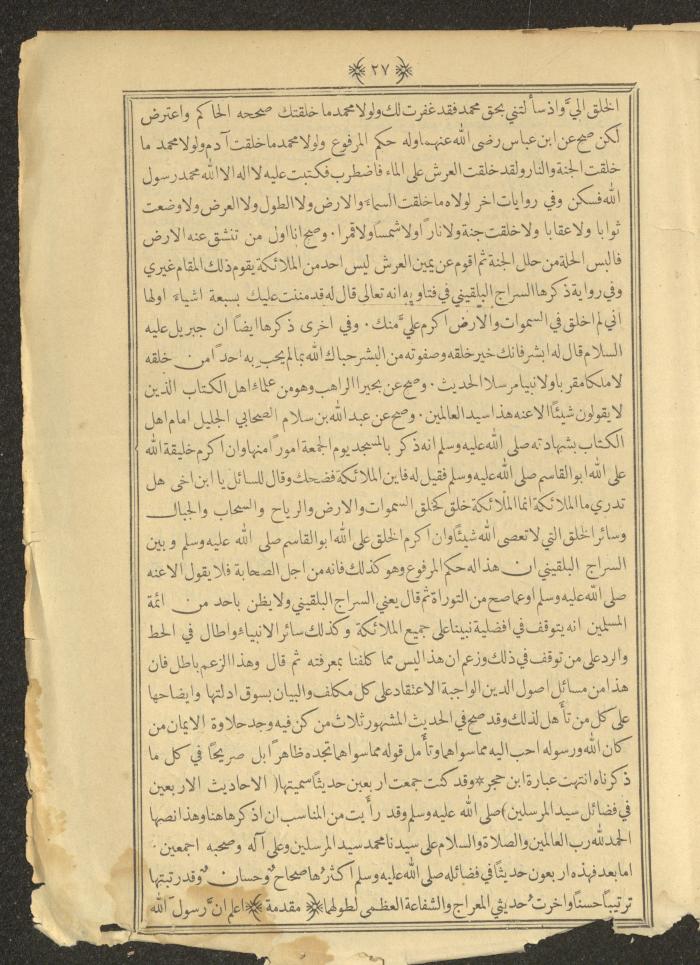 ﴿ ٢٧ ﴾
الخلق اليَّ واذ سألتني بحق محمد فقد غفرت لك ولولا محمد ما خلقتك صححه الحاكم واعترض
لكن صح عن ابن عباس رضى الله عنهما وله حكم المرفوع ولولا محمد ما خلقت آدم ولولا محمد ما
خلقت الجنة والنار ولقد خلقت العرش على الماء فاضطرب فكتبت عليه لا اله الا الله محمد رسول
الله فسكن وفي روايات اخر لولاه ما خلقت السماء والارض ولا الطول ولا العرض ولا وضعت
ثوابا ولا عقابا ولا خلقت جنة ولا ناراً ولا شمساً ولا قمرا . وصح انا اول من تنشق عنه الارض
فالبس الحلة من حلل الجنة ثم اقوم عن يمين العرش ليس احد من الملائكة يقوم ذلك المقام غيري
وفي رواية ذكرها السراج البلقيني في فتاويه انه تعالى قال له قد مننت عليك بسبعة اشياء اولها
اني لم اخلق في السموات والارض اكرم عليَّ منك . وفي اخرى ذكرها ايضاً ان جبريل عليه
السلام قال له ابشر فانك خير خلقه وصفوته من البشر حباك الله بما لم يحب به احداً من خلقه
لا ملكا مقربا ولا نبيا مرسلا الحديث . وصح عن بحيرا الراهب وهو من علماء اهل الكتاب الذين
لا يقولون شيئًا الا عنه هذا سيد العالمين . وصح عن عبد الله بن سلام الصحابي الجليل امام اهل
الكتاب بشهادته صلى الله عليه وسلم انه ذكر بالمسجد يوم الجمعة اموراً منها وان اكرم خليقة الله
على الله ابو القاسم صلى الله عليه وسلم فقيل له فاين الملائكة فضحك وقال للسائل يا ابن اخى هل
تدري ما الملائكة انما الملائكة خلق كخلق السموات والارض والرياح والسحاب والجبال
وسائر الخلق التي لا تعصى الله شيئًا وان اكرم الخلق على الله ابو القاسم صلى الله عليه وسلم وبين
السراج البلقيني ان هذا له حكم المرفوع وهو كذلك فانه من اجل الصحابة فلا يقول الا عنه
صلى الله عليه وسلم او عما صح من التوراة ثم قال يعني السراج البلقيني ولا يظن باحد من ائمة
المسلمين انه يتوقف في افضلية نبينا على جميع الملائكة وكذلك سائر الانبياء واطال في الحط
والرد على من توقف في ذلك وزعم ان هذا ليس مما كلفنا بمعرفته ثم قال وهذا الزعم باطل فان
هذا من مسائل اصول الدين الواجبة الاعتقاد على كل مكلف والبيان بسوق ادلتها وايضاحها
على كل من تأهل لذلك وقد صح في الحديث المشهور ثلاث من كن فيه وجد حلاوة الايمان من
كان الله ورسوله احب اليه مما سواهما وتأمل قوله مما سواهما تجده ظاهراً بل صريحًا في كل ما
ذكرناه انتهت عبارة ابن حجر * وقد كنت جمعت اربعين حديثاً سميتها ( الاحاديث الاربعين
في فضائل سيد المرسلين ) صلى الله عليه وسلم وقد رأيت من المناسب ان اذكرها هنا وهذا نصها
الحمد لله رب العالمين والصلاة والسلام على سيدنا محمد سيد المرسلين وعلى آله وصحبه اجمعين .
اما بعد فهذه اربعون حديثًا في فضائله صلى الله عليه وسلم اكثرُها صحاحٌ وحسان وقد رتبتها
ترتيباً حسناً واخرت حديثي المعراج والشفاعة العظمى لطولهما ﴿ مقدمة ﴾ اعلم انَّ رسول الله